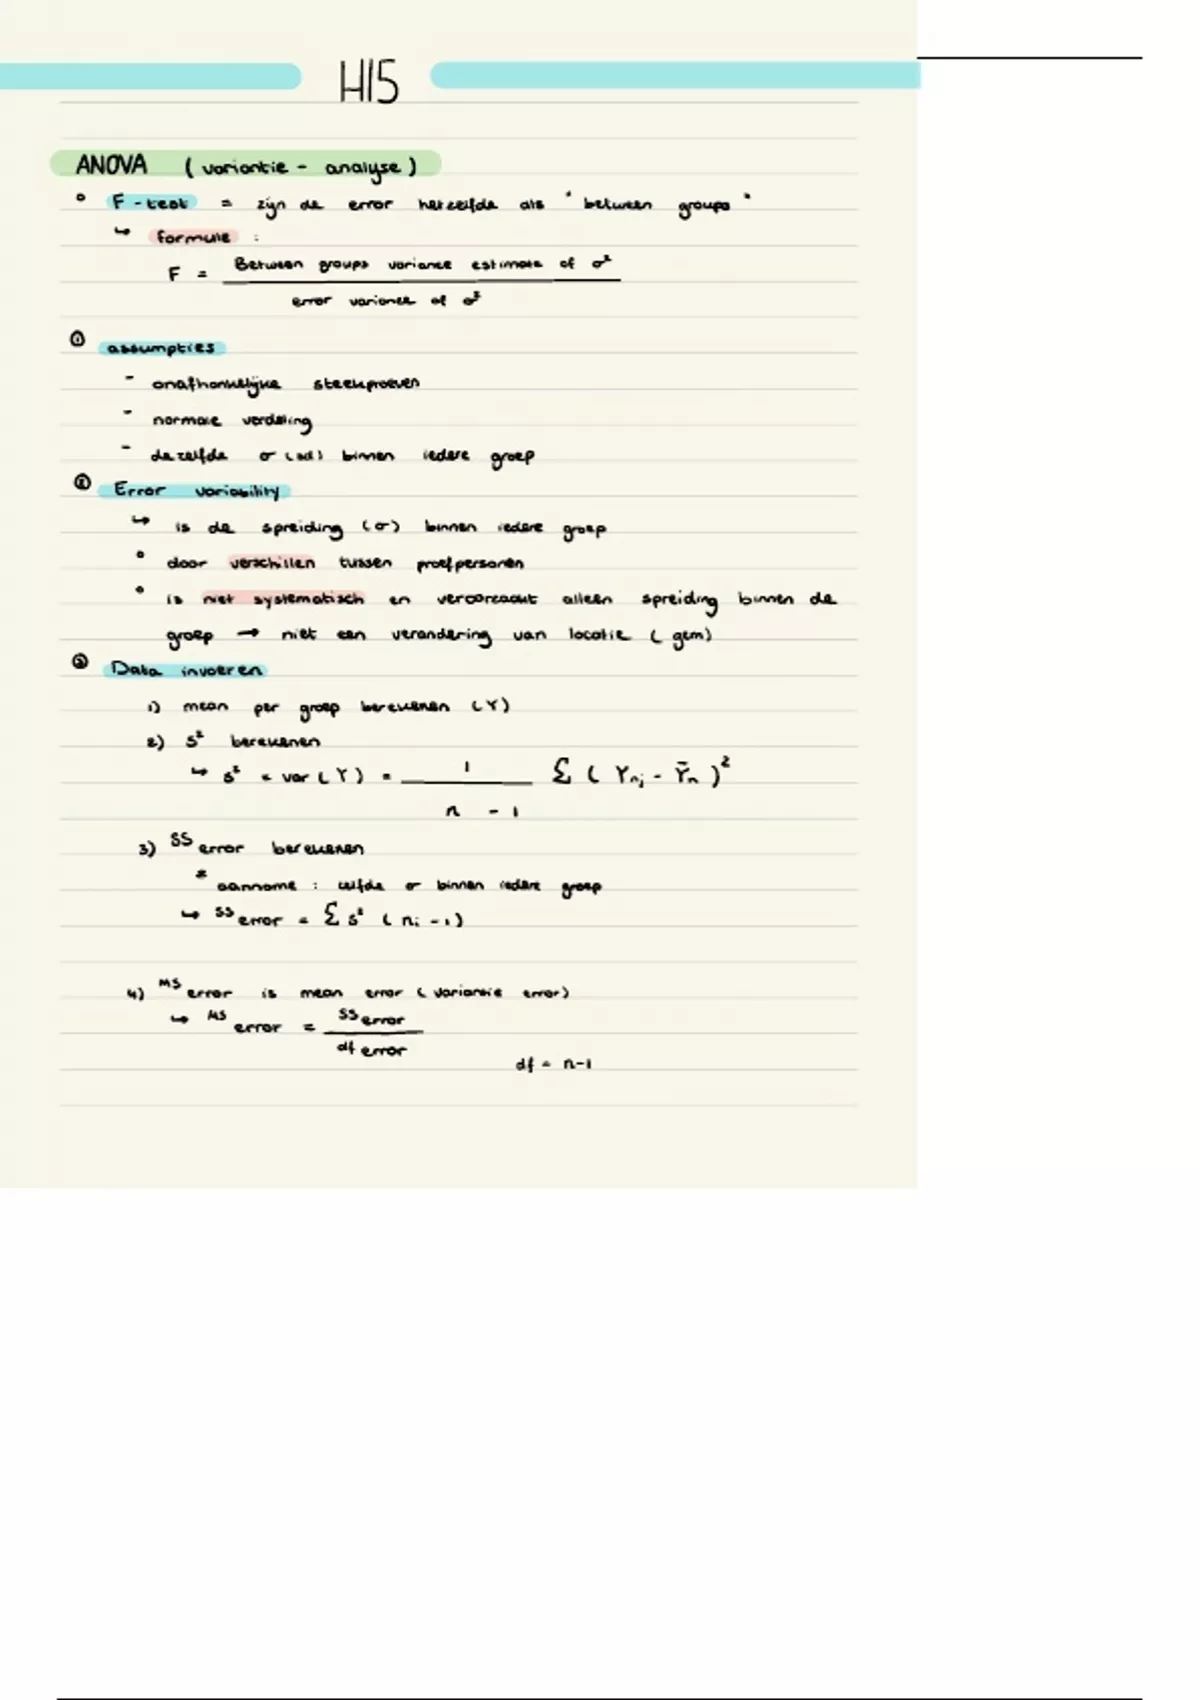 H15
ANOVA (variantie - analyse)
° F-test = zijn de error hetzelfde als "between groups"
↳ formule :
F = Between groups variance estimate of σ²
error variance of σ²
① assumpties
- onafhankelijke steekproeven
- normale verdeling
- dezelfde σ (sd) binnen iedere groep
② Error variability
↳ is de spreiding (σ) binnen iedere groep
° door verschillen tussen proefpersonen
° is niet systematisch en veroorzaakt alleen spreiding binnen de
groep → niet een verandering van locatie (gem)
③ Data invoeren
1) mean per groep berekenen (Y)
2) s² berekenen
↳ s² = var (Y) = 1 / n - 1 Σ (Ynj - Ȳn)²
3) SS error berekenen
* aanname : zelfde σ binnen iedere groep
↳ SS error = Σ s² (ni - 1)
4) MS error is mean error (variantie error)
↳ MS error = SS error / df error
df = n-1